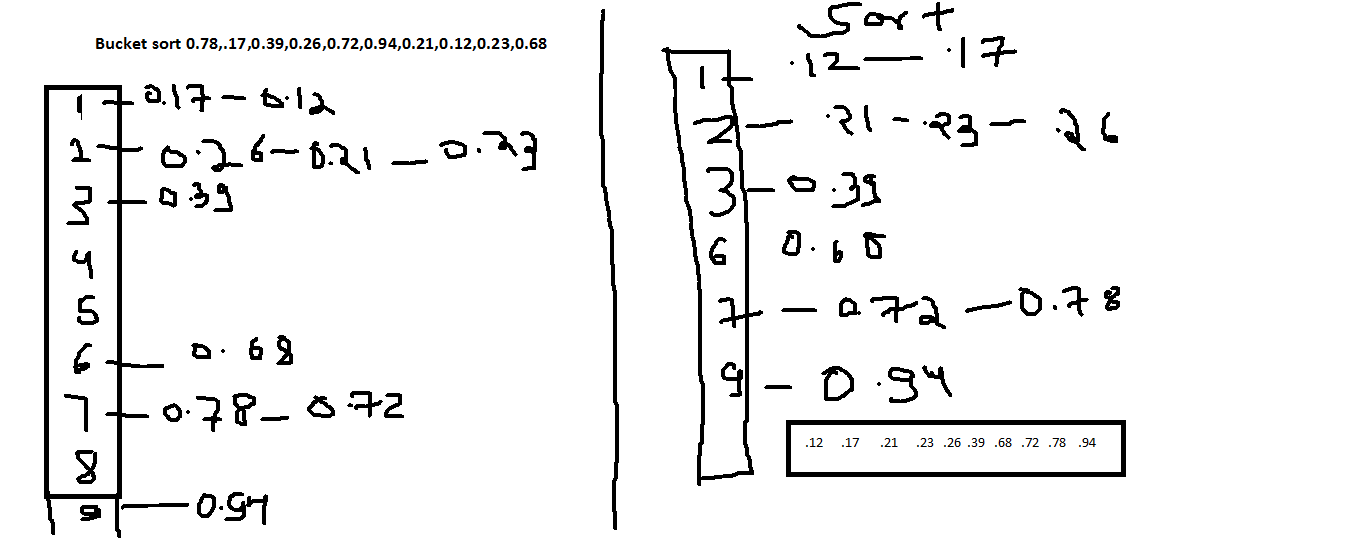 Bucket sort 0.78,.17,0.39,0.26,0.72,0.94,0.21,0.12,0.23,0.68
1 - 0.17 - 0.12
2 - 0.26 - 0.21 - 0.23
3 - 0.39
4
5
6 - 0.68
7 - 0.78 - 0.72
8
9 - 0.94
Sort
1 - .12 - .17
2 - .21 - .23 - .26
3 - 0.39
6 0.68
7 - 0.72 - 0.78
9 - 0.94
.12 .17 .21 .23 .26 .39 .68 .72 .78 .94